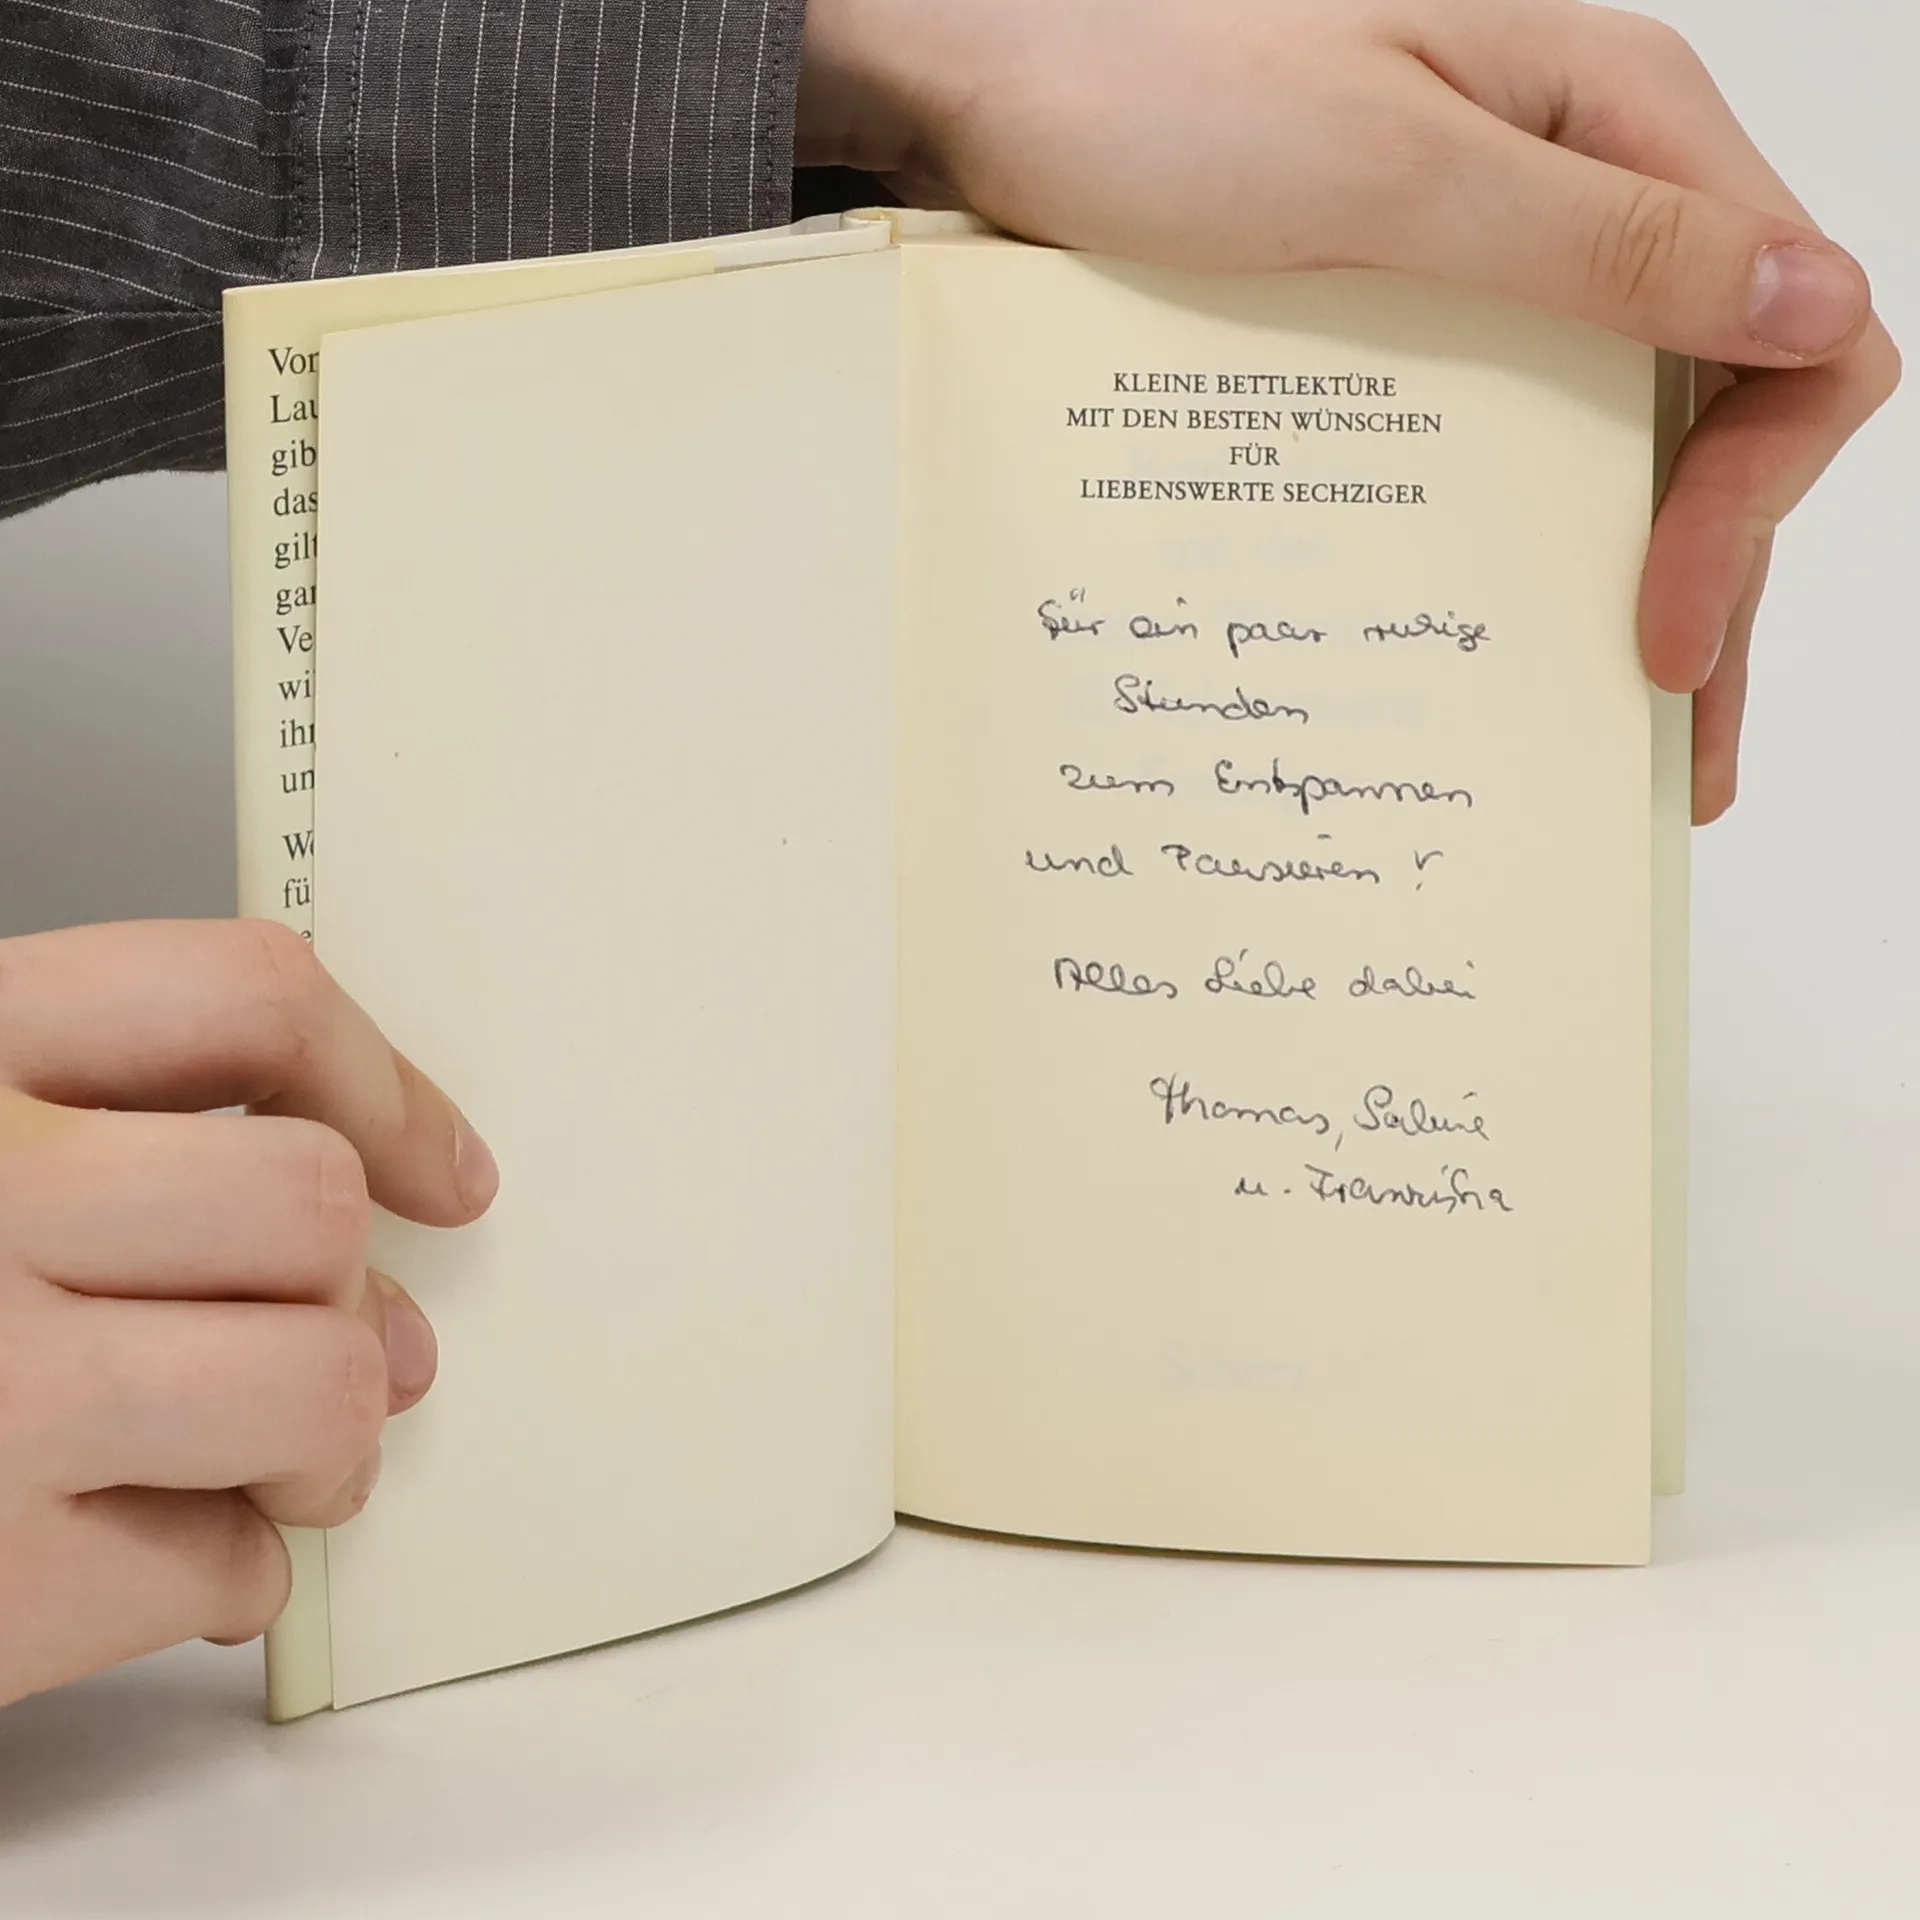 Vor
Lau
gib
das
gilt
gar
Ve
wi
ihr
un
We
fü
KLEINE BETTLEKTÜRE
MIT DEN BESTEN WÜNSCHEN
FÜR
LIEBENSWERTE SECHZIGER
Für ein paar ruhige
Stunden
zum Entspannen
und Pausieren!
Alles Liebe dabei
Thomas, Sabine
u. Franziska